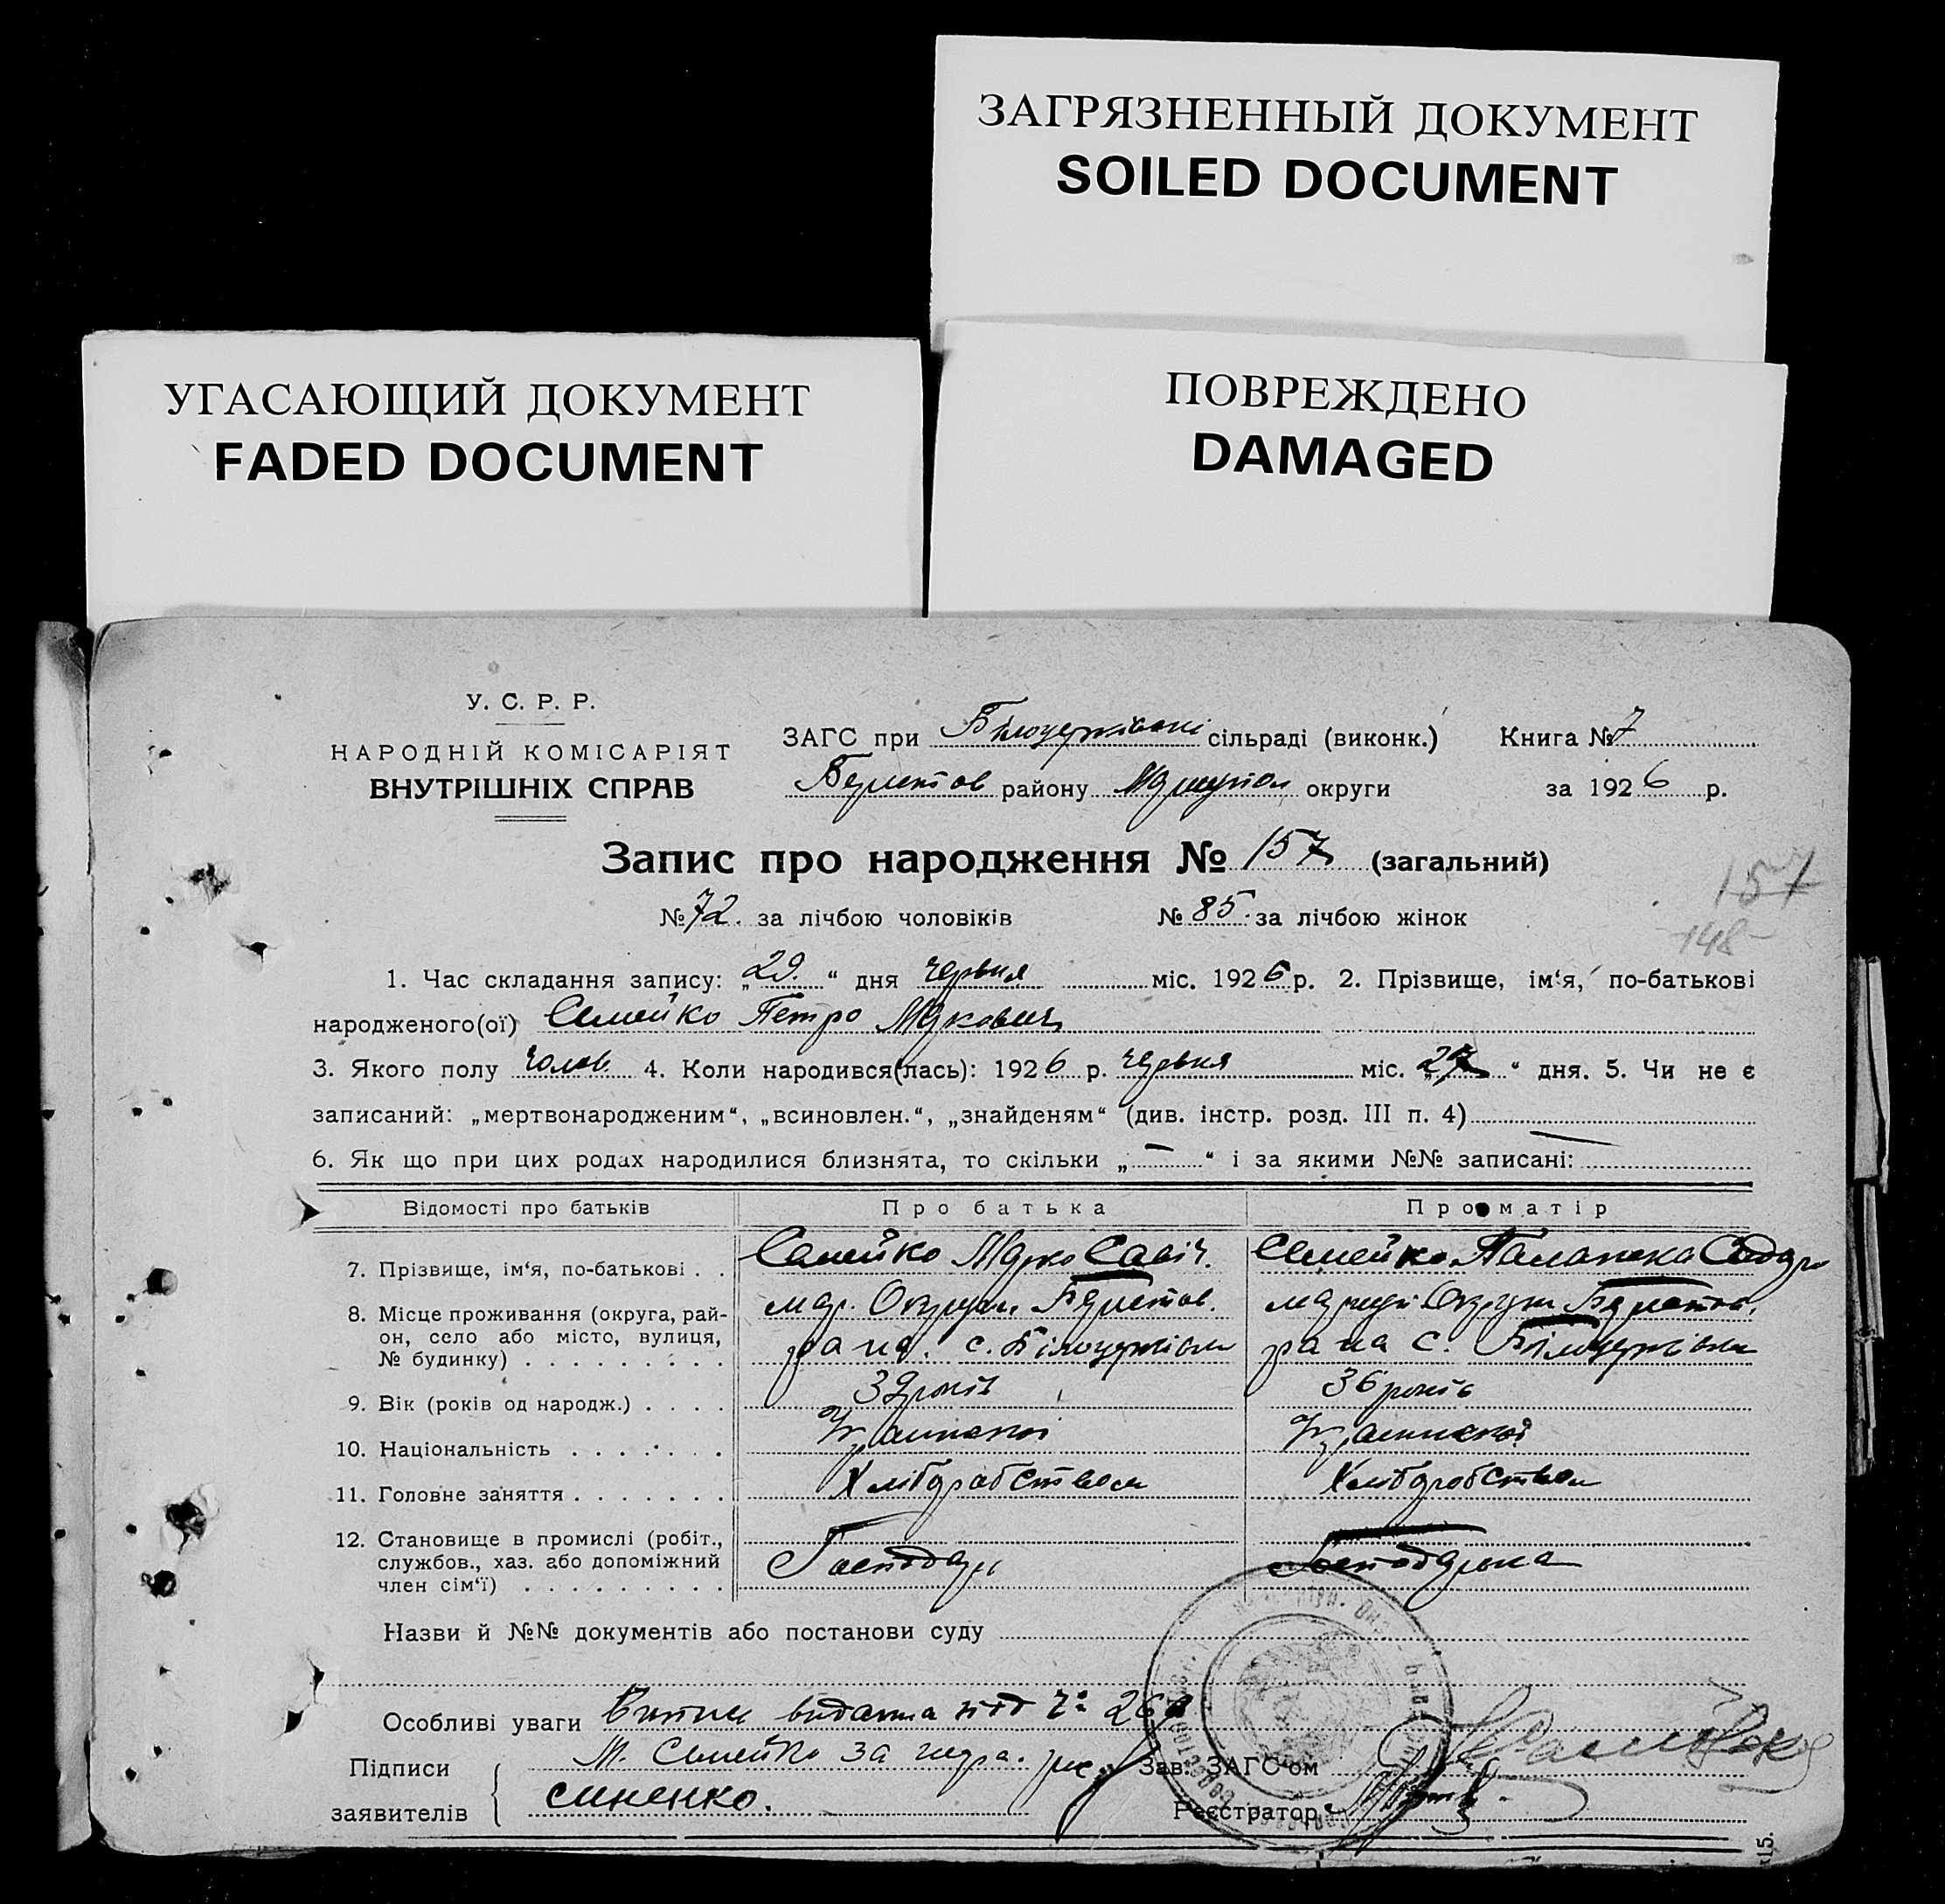 ЗАГРЯЗНЕННЫЙ ДОКУМЕНТ
SOILED DOCUMENT
УГАСАЮЩИЙ ДОКУМЕНТ
FADED DOCUMENT
ПОВРЕЖДЕНО
DAMAGED
У. С. Р. Р.
НАРОДНІЙ КОМІСАРІЯТ
ВНУТРІШНІХ СПРАВ
ЗАГС при сільраді (виконк.) Книга № 7
району округи за 1926 р.
Запис про народження № 157 (загальний)
157
№ 72. за лічбою чоловіків № 85. за лічбою жінок
148
1. Час складання запису: „29.“ дня червня міс. 1926 р. 2. Прізвище, ім‘я, по-батькові
народженого(ої) Семейко Петро Маркович
3. Якого полу чолов. 4. Коли народився(лась): 1926 р. червня міс. „27“ дня. 5. Чи не є
записаний: „мертвонародженим“, „всиновлен.“, „знайденям“ (див. інстр. розд. III п. 4)
6. Як що при цих родах народилися близнята, то скільки „—“ і за якими №№ записані:
Відомості про батьків Про батька Про матір
7. Прізвище, ім‘я, по-батькові . . Семейко Марко Савіч. Семейко
8. Місце проживання (округа, рай-
он, село або місто, вулиця,
№ будинку) . . . . . . . . .
9. Вік (років од народж.) . . . . 39 років 36 років
10. Національність . . . . . . .
11. Головне заняття . . . . . . . Хліборобством Хліборобством
12. Становище в промислі (робіт.,
службов., хаз. або допоміжний
член сім‘ї) . . . . . . . . . Господарь Господарька
Назви й №№ документів або постанови суду
Особливі уваги видана під
Підписи М. Семейко за Зав. ЗАГС‘ом
заявителів синенко. Реєстратор